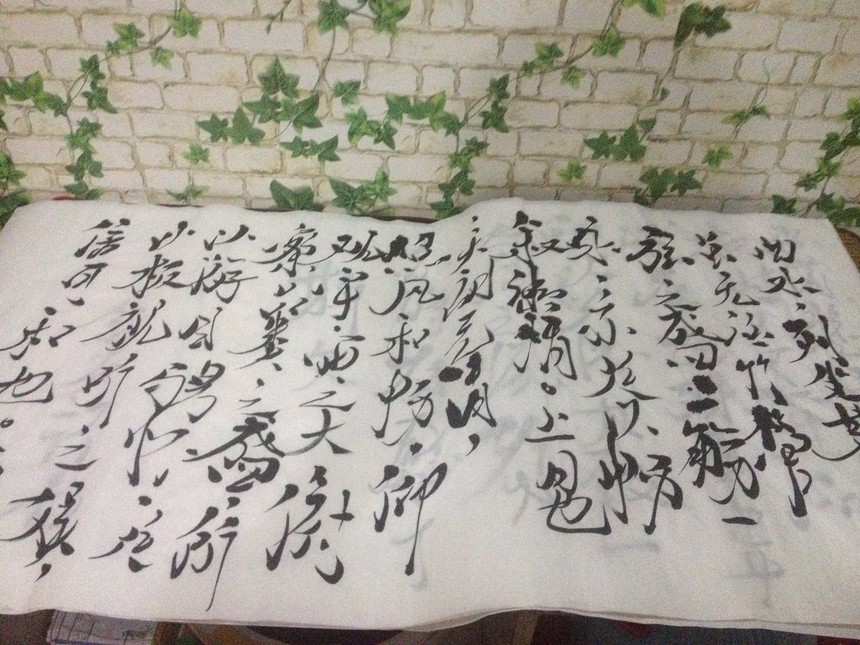 曲水，列坐其
虽无丝竹管
弦之盛，一觞一
咏，亦足以畅
叙幽情。是日也
天朗气清，
惠风和畅，仰
观宇宙之大，俯
察品类之盛，所
以游目骋怀，足
以极视听之娱，
信可乐也。